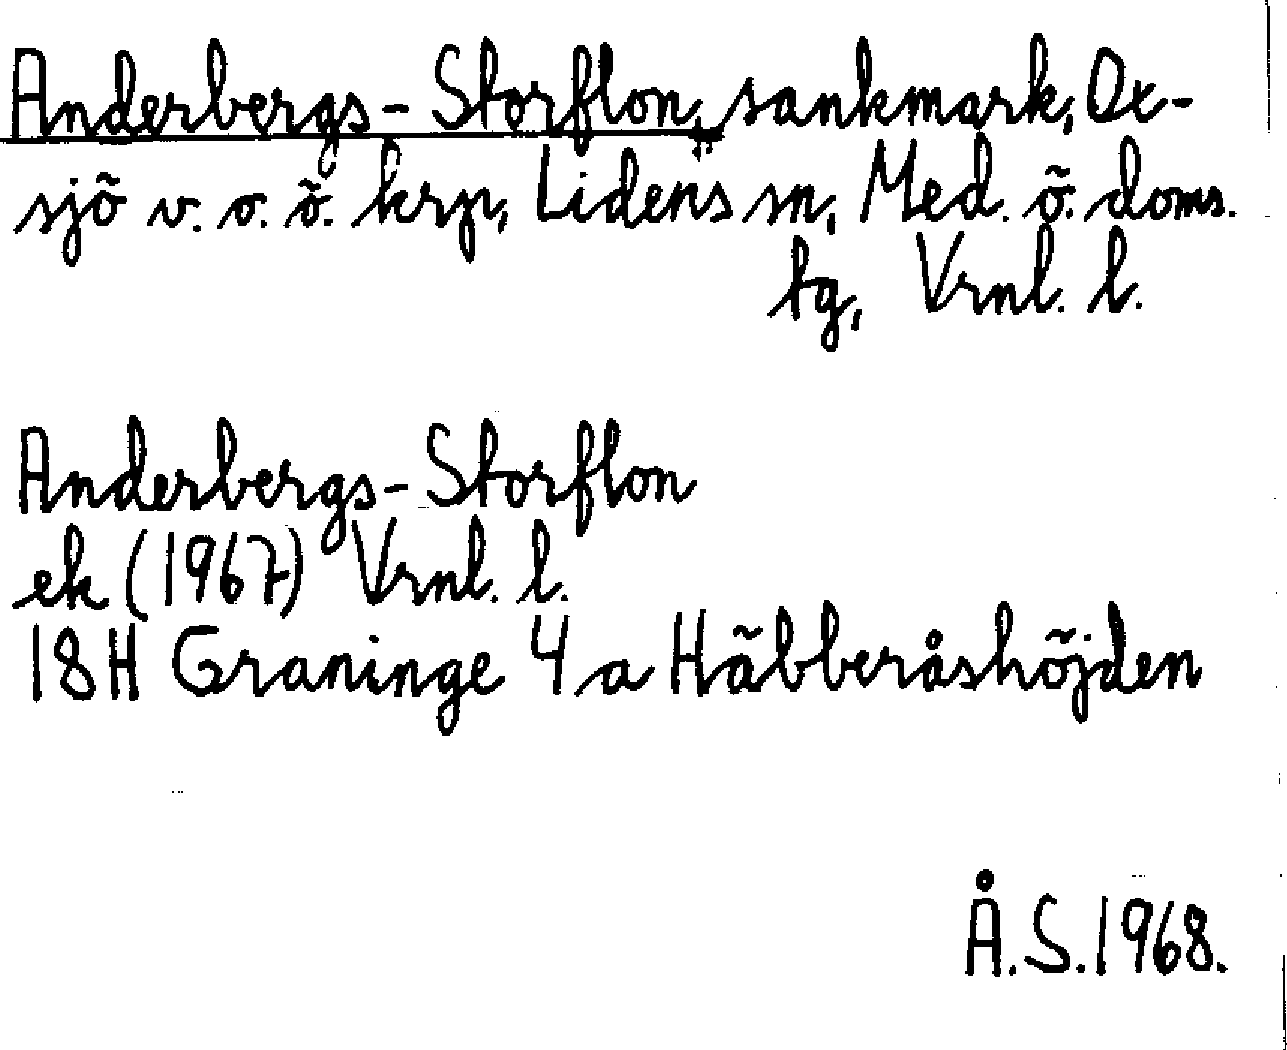 Anderbergs-Storflon, sankmark, Ox-
sjö v. o. ö. krp, Lidens sn, Med. ö. doms.
tg, Vrnl. l.
Anderbergs-Storflon
ek (1967) Vrnl. l.
18H Graninge 4a Häbberåshöjden
Å.S.1968.